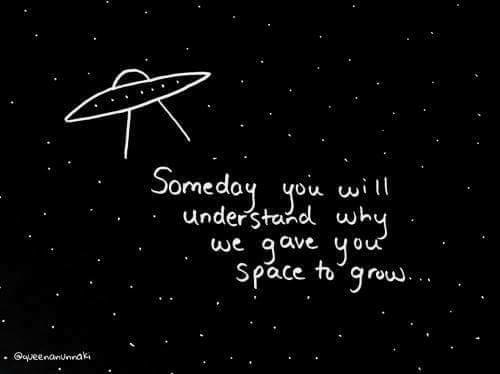 Someday you will
understand why
we gave you
space to grow...
@queenanunnaki